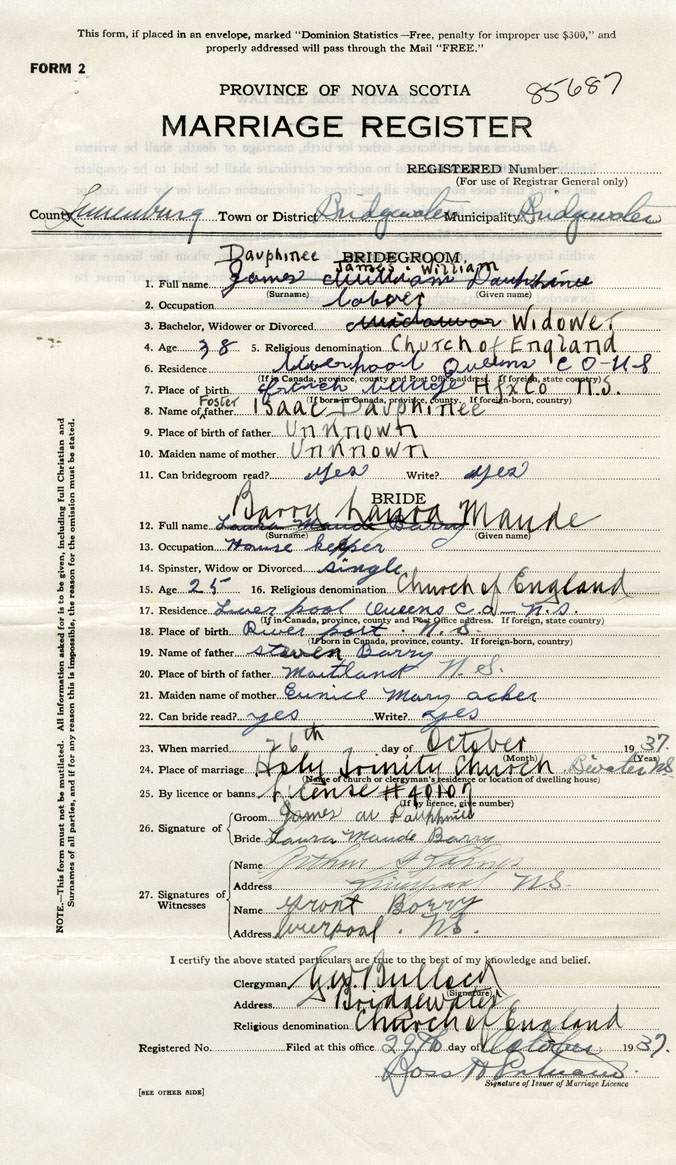 This form, if placed in an envelope, marked "Dominion Statistics—Free, penalty for improper use $300," and
properly addressed will pass through the Mail "FREE."
FORM 2
PROVINCE OF NOVA SCOTIA 85687
MARRIAGE REGISTER
REGISTERED Number
(For use of Registrar General only)
County Lunenburg Town or District Bridgewater Municipality Bridgewater
Dauphinee BRIDEGROOM
James William
1. Full name James William Dauphinee
(Surname) (Given name)
2. Occupation laborer
3. Bachelor, Widower or Divorced widower Widower
4. Age 38 5. Religious denomination Church of England
6. Residence Liverpool Queens CO-N S
(If in Canada, province, county and Post Office address. If foreign, state country)
7. Place of birth french village Hfx Co N.S.
(If born in Canada, province, county. If foreign-born, country)
8. Name of Foster father Isaac Dauphinee
9. Place of birth of father Unknown
10. Maiden name of mother Unknown
11. Can bridegroom read? yes Write? yes
BRIDE
Barry Laura Maude
12. Full name Laura Maude Barry
(Surname) (Given name)
13. Occupation House keeper
14. Spinster, Widow or Divorced single
15. Age 25 16. Religious denomination Church of England
17. Residence Liverpool Queens C.O - N.S.
(If in Canada, province, county and Post Office address. If foreign, state country)
18. Place of birth River port . N.S.
(If born in Canada, province, county. If foreign-born, country)
19. Name of father steven Barry
20. Place of birth of father Maitland N.S.
21. Maiden name of mother Eunice Mary acker
22. Can bride read? yes Write? yes
23. When married 26th day of October 1937.
(Month) (Year)
24. Place of marriage Holy Trinity Church B'water NS.
(Name of church or clergyman's residence or location of dwelling house)
25. By licence or banns License #40107
(If by licence, give number)
26. Signature of
Groom James W Dauphinee
Bride Laura Maude Barry
27. Signatures of Witnesses
Name Arthur
Address Liverpool NS.
Name Barry
Address Liverpool . NS.
I certify the above stated particulars are true to the best of my knowledge and belief.
Clergyman Bullock
(Signature)
Address Bridgewater
Religious denomination Church of England
Registered No. Filed at this office 29th day of October 1937.
Ross
Signature of Issuer of Marriage Licence
[SEE OTHER SIDE]
NOTE.—This form must not be mutilated. All information asked for is to be given, including full Christian and
Surnames of all parties, and if for any reason this is impossible, the reason for the omission must be stated.